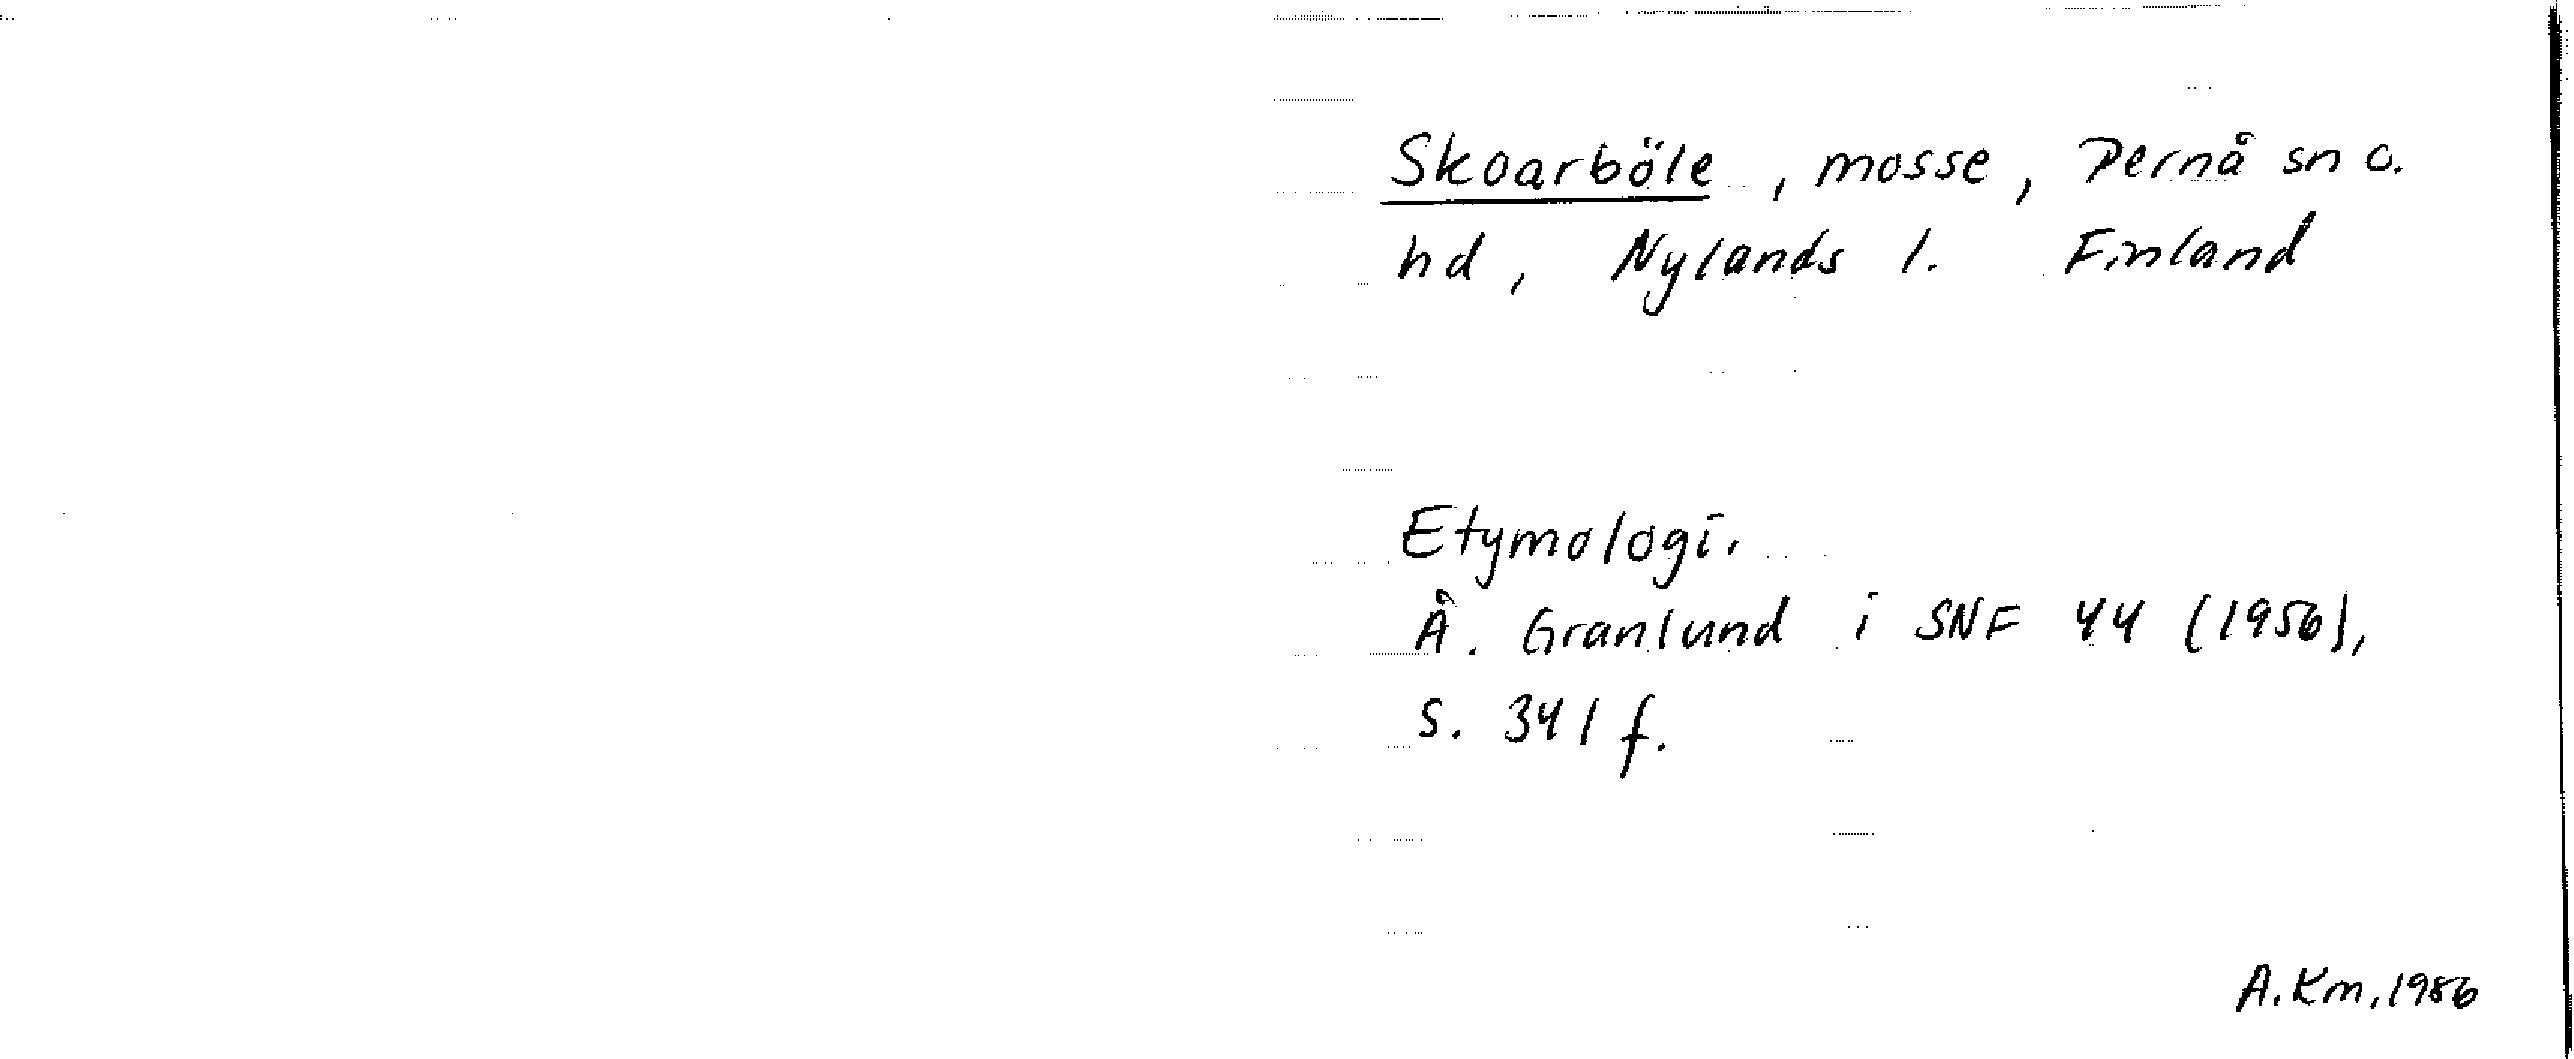 Skoarböle, mosse, Pernå sn o.
hd, Nylands l. Finland
Etymologi.
Å. Granlund i SNF 44 (1956),
s. 341 f.
A.Km, 1986